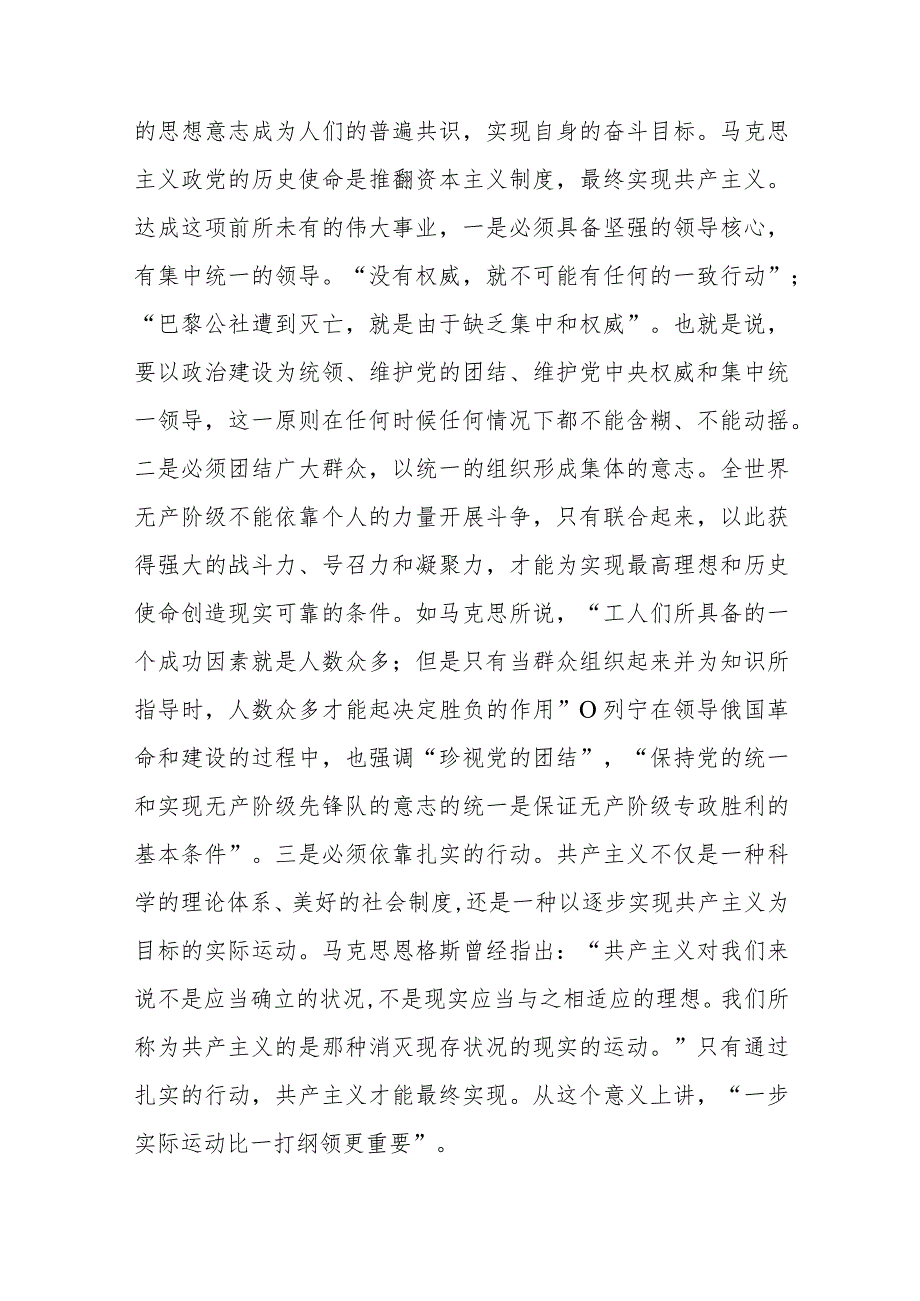 的思想意志成为人们的普遍共识，实现自身的奋斗目标。马克思
主义政党的历史使命是推翻资本主义制度，最终实现共产主义。
达成这项前所未有的伟大事业，一是必须具备坚强的领导核心，
有集中统一的领导。“没有权威，就不可能有任何的一致行动”；
“巴黎公社遭到灭亡，就是由于缺乏集中和权威”。也就是说，
要以政治建设为统领、维护党的团结、维护党中央权威和集中统
一领导，这一原则在任何时候任何情况下都不能含糊、不能动摇。
二是必须团结广大群众，以统一的组织形成集体的意志。全世界
无产阶级不能依靠个人的力量开展斗争，只有联合起来，以此获
得强大的战斗力、号召力和凝聚力，才能为实现最高理想和历史
使命创造现实可靠的条件。如马克思所说，“工人们所具备的一
个成功因素就是人数众多；但是只有当群众组织起来并为知识所
指导时，人数众多才能起决定胜负的作用”O列宁在领导俄国革
命和建设的过程中，也强调“珍视党的团结”，“保持党的统一
和实现无产阶级先锋队的意志的统一是保证无产阶级专政胜利的
基本条件”。三是必须依靠扎实的行动。共产主义不仅是一种科
学的理论体系、美好的社会制度,还是一种以逐步实现共产主义为
目标的实际运动。马克思恩格斯曾经指出：“共产主义对我们来
说不是应当确立的状况,不是现实应当与之相适应的理想。我们所
称为共产主义的是那种消灭现存状况的现实的运动。”只有通过
扎实的行动，共产主义才能最终实现。从这个意义上讲，“一步
实际运动比一打纲领更重要”。